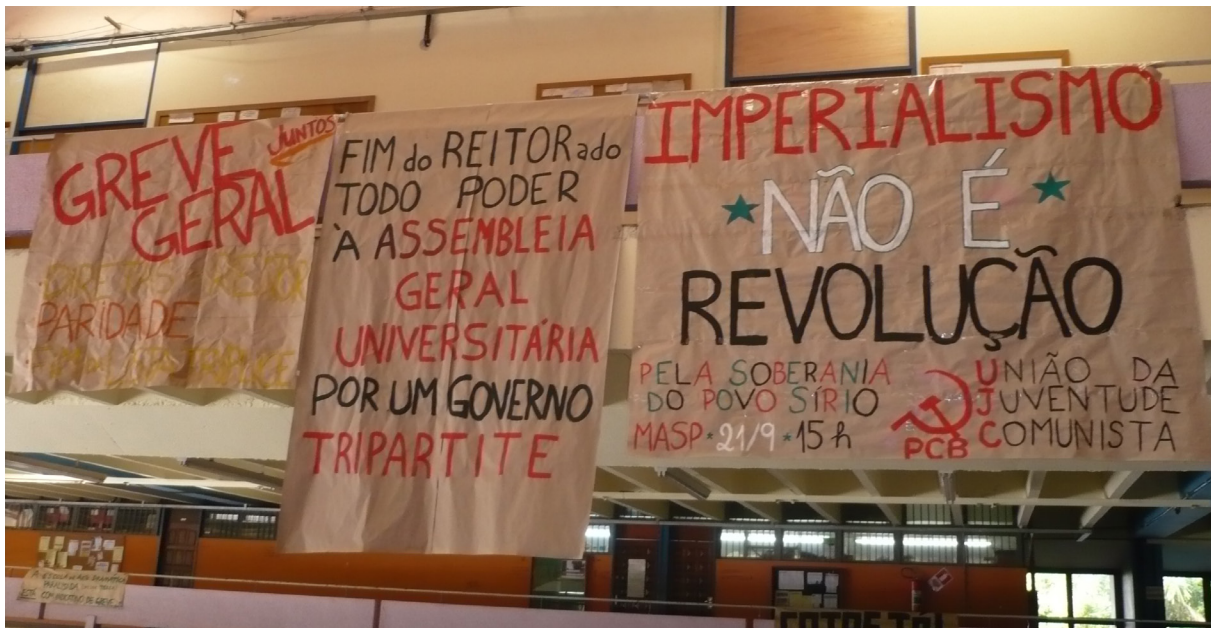 GREVE
GERAL
JUNTOS
DIRETAS REITOR
PARIDADE
FIM do REITORado
TODO PODER
À ASSEMBLEIA
GERAL
UNIVERSITÁRIA
POR UM GOVERNO
TRIPARTITE
IMPERIALISMO
NÃO É
REVOLUÇÃO
PELA SOBERANIA
DO POVO SÍRIO
MASP * 21/9 * 15 h
PCB
UNIÃO DA
JUVENTUDE
COMUNISTA